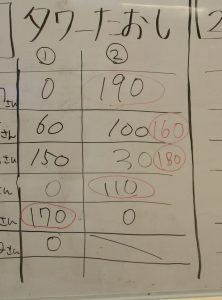 タワーたおし
① ②
さん 0 190
さん 60 100 160
さん 150 30 180
さん 0 110
さん 170 0
さん 0